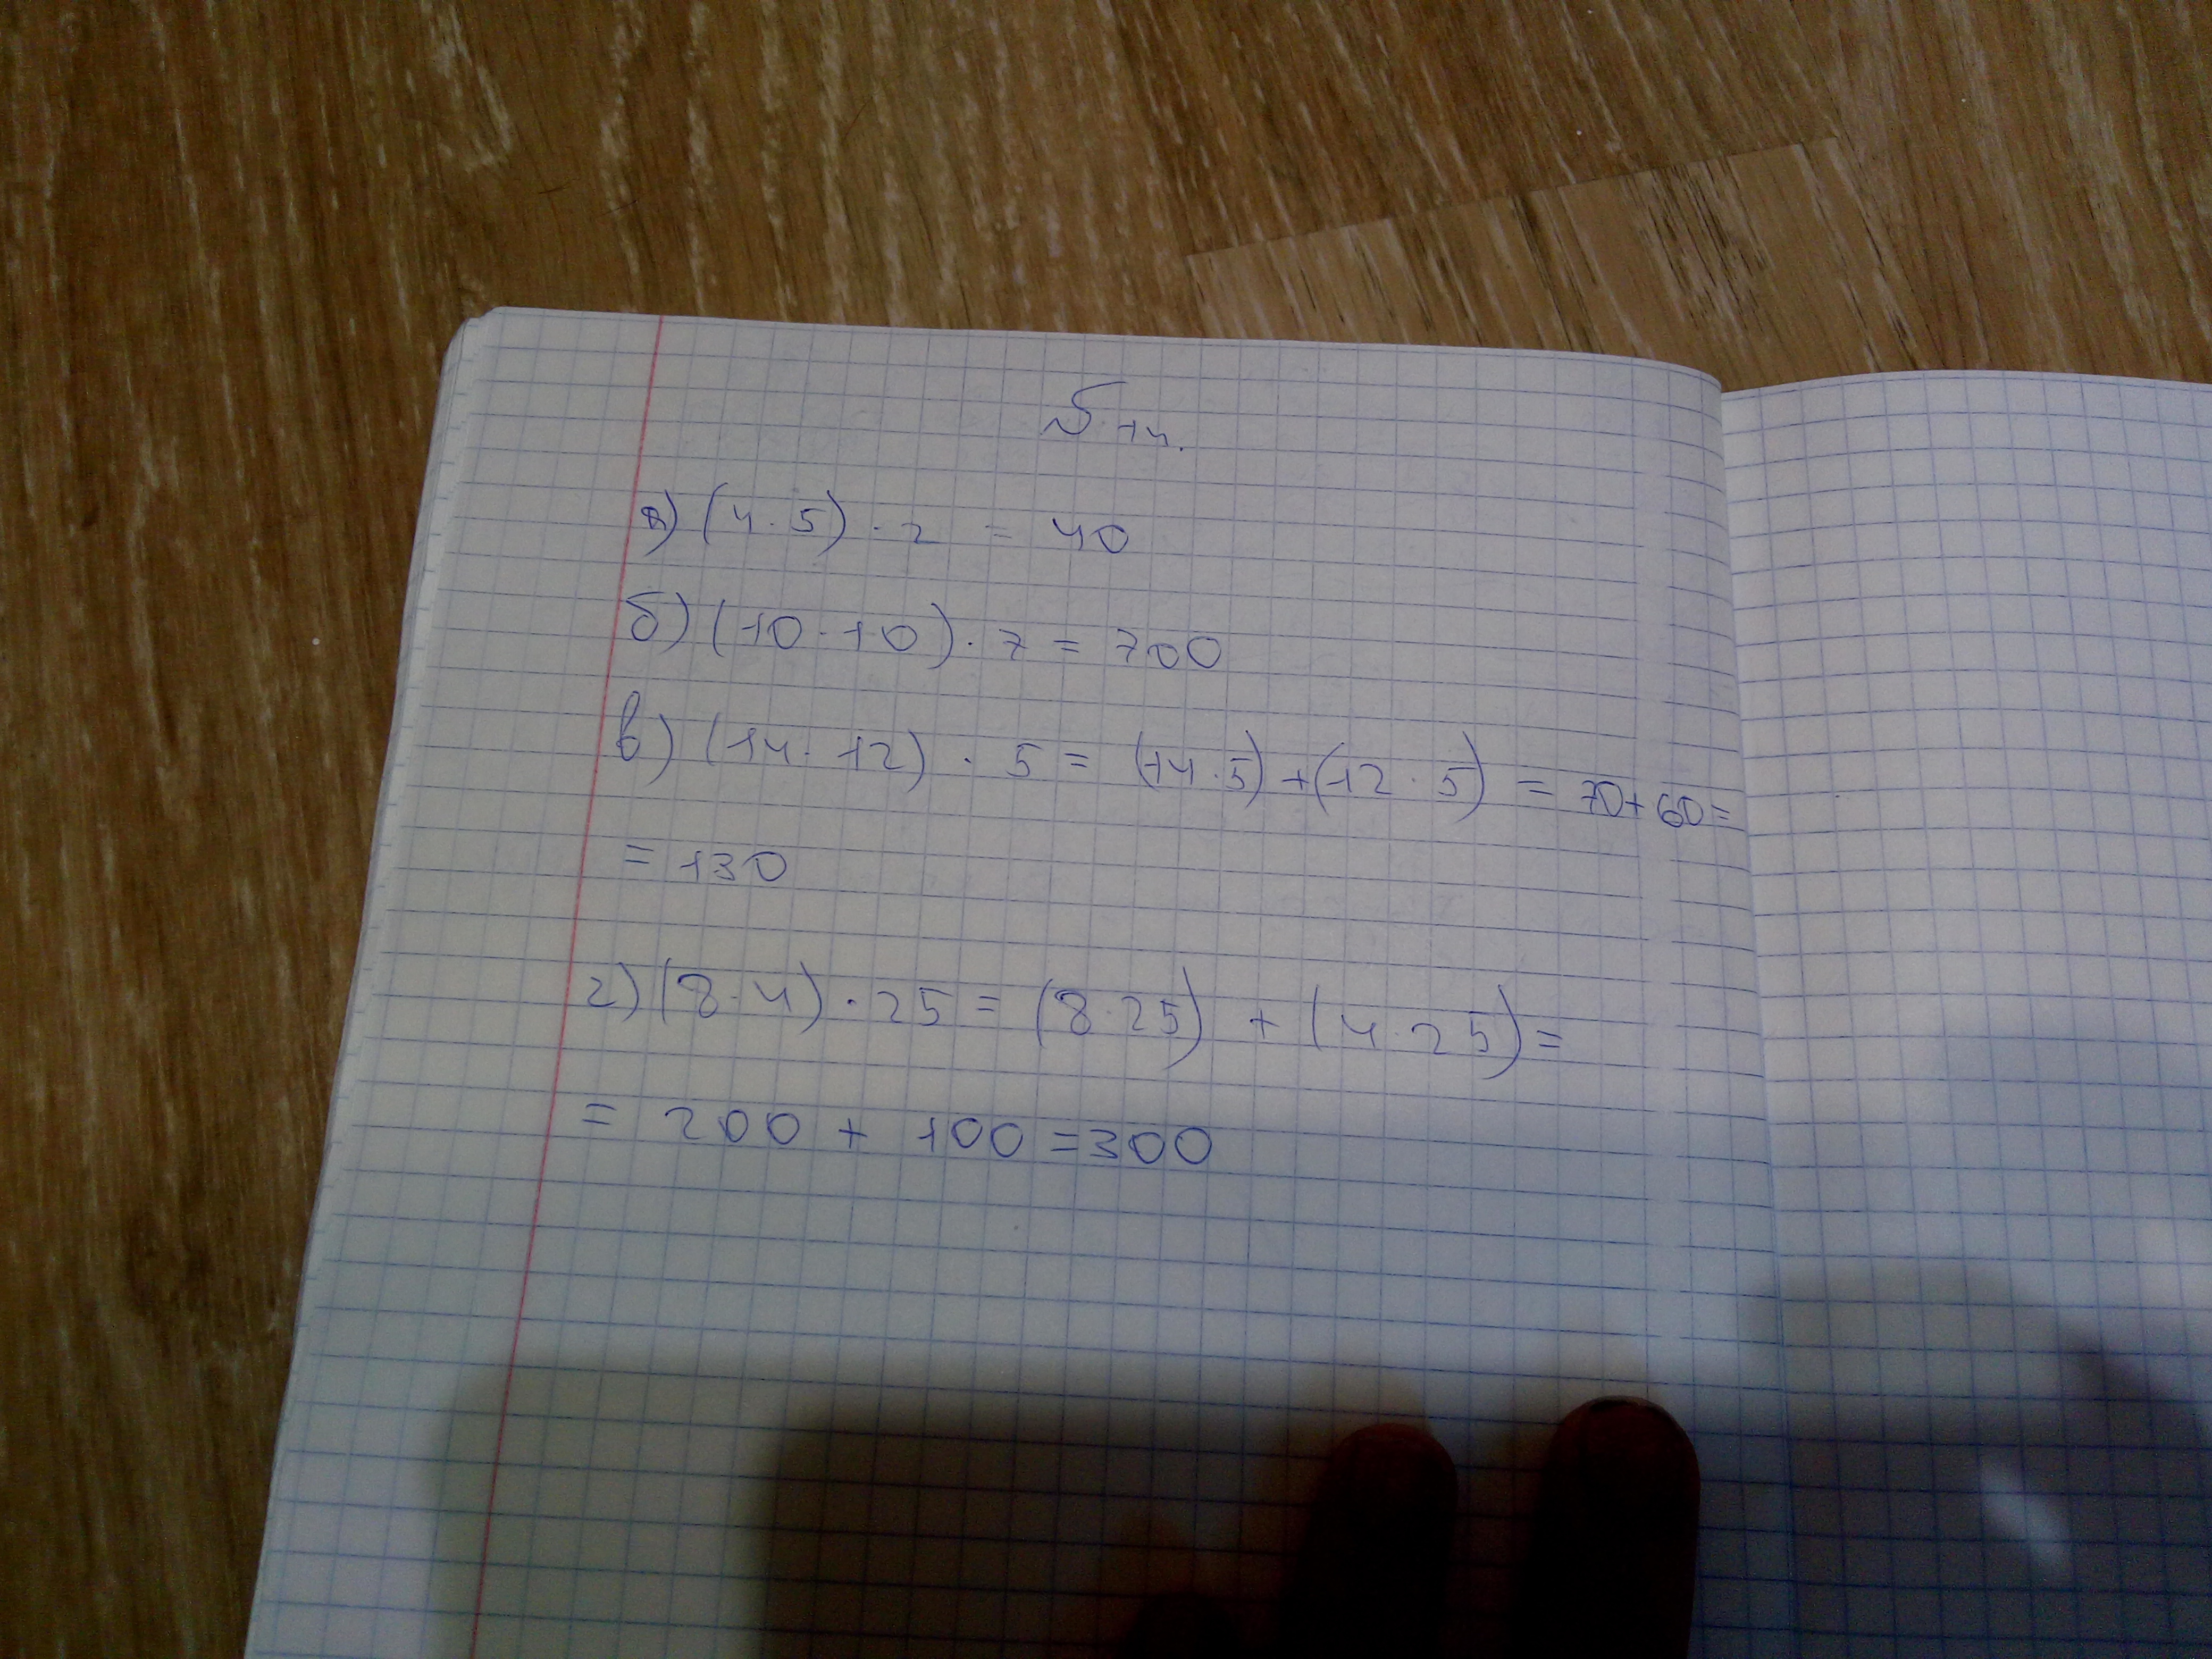 № 14.
а) (4·5)·2 = 40
б) (10·10)·7 = 700
в) (14·12)·5 = (14·5)+(12·5) = 70+60=
= 130
г) (8·4)·25 = (8·25) + (4·25)=
= 200 + 100 = 300